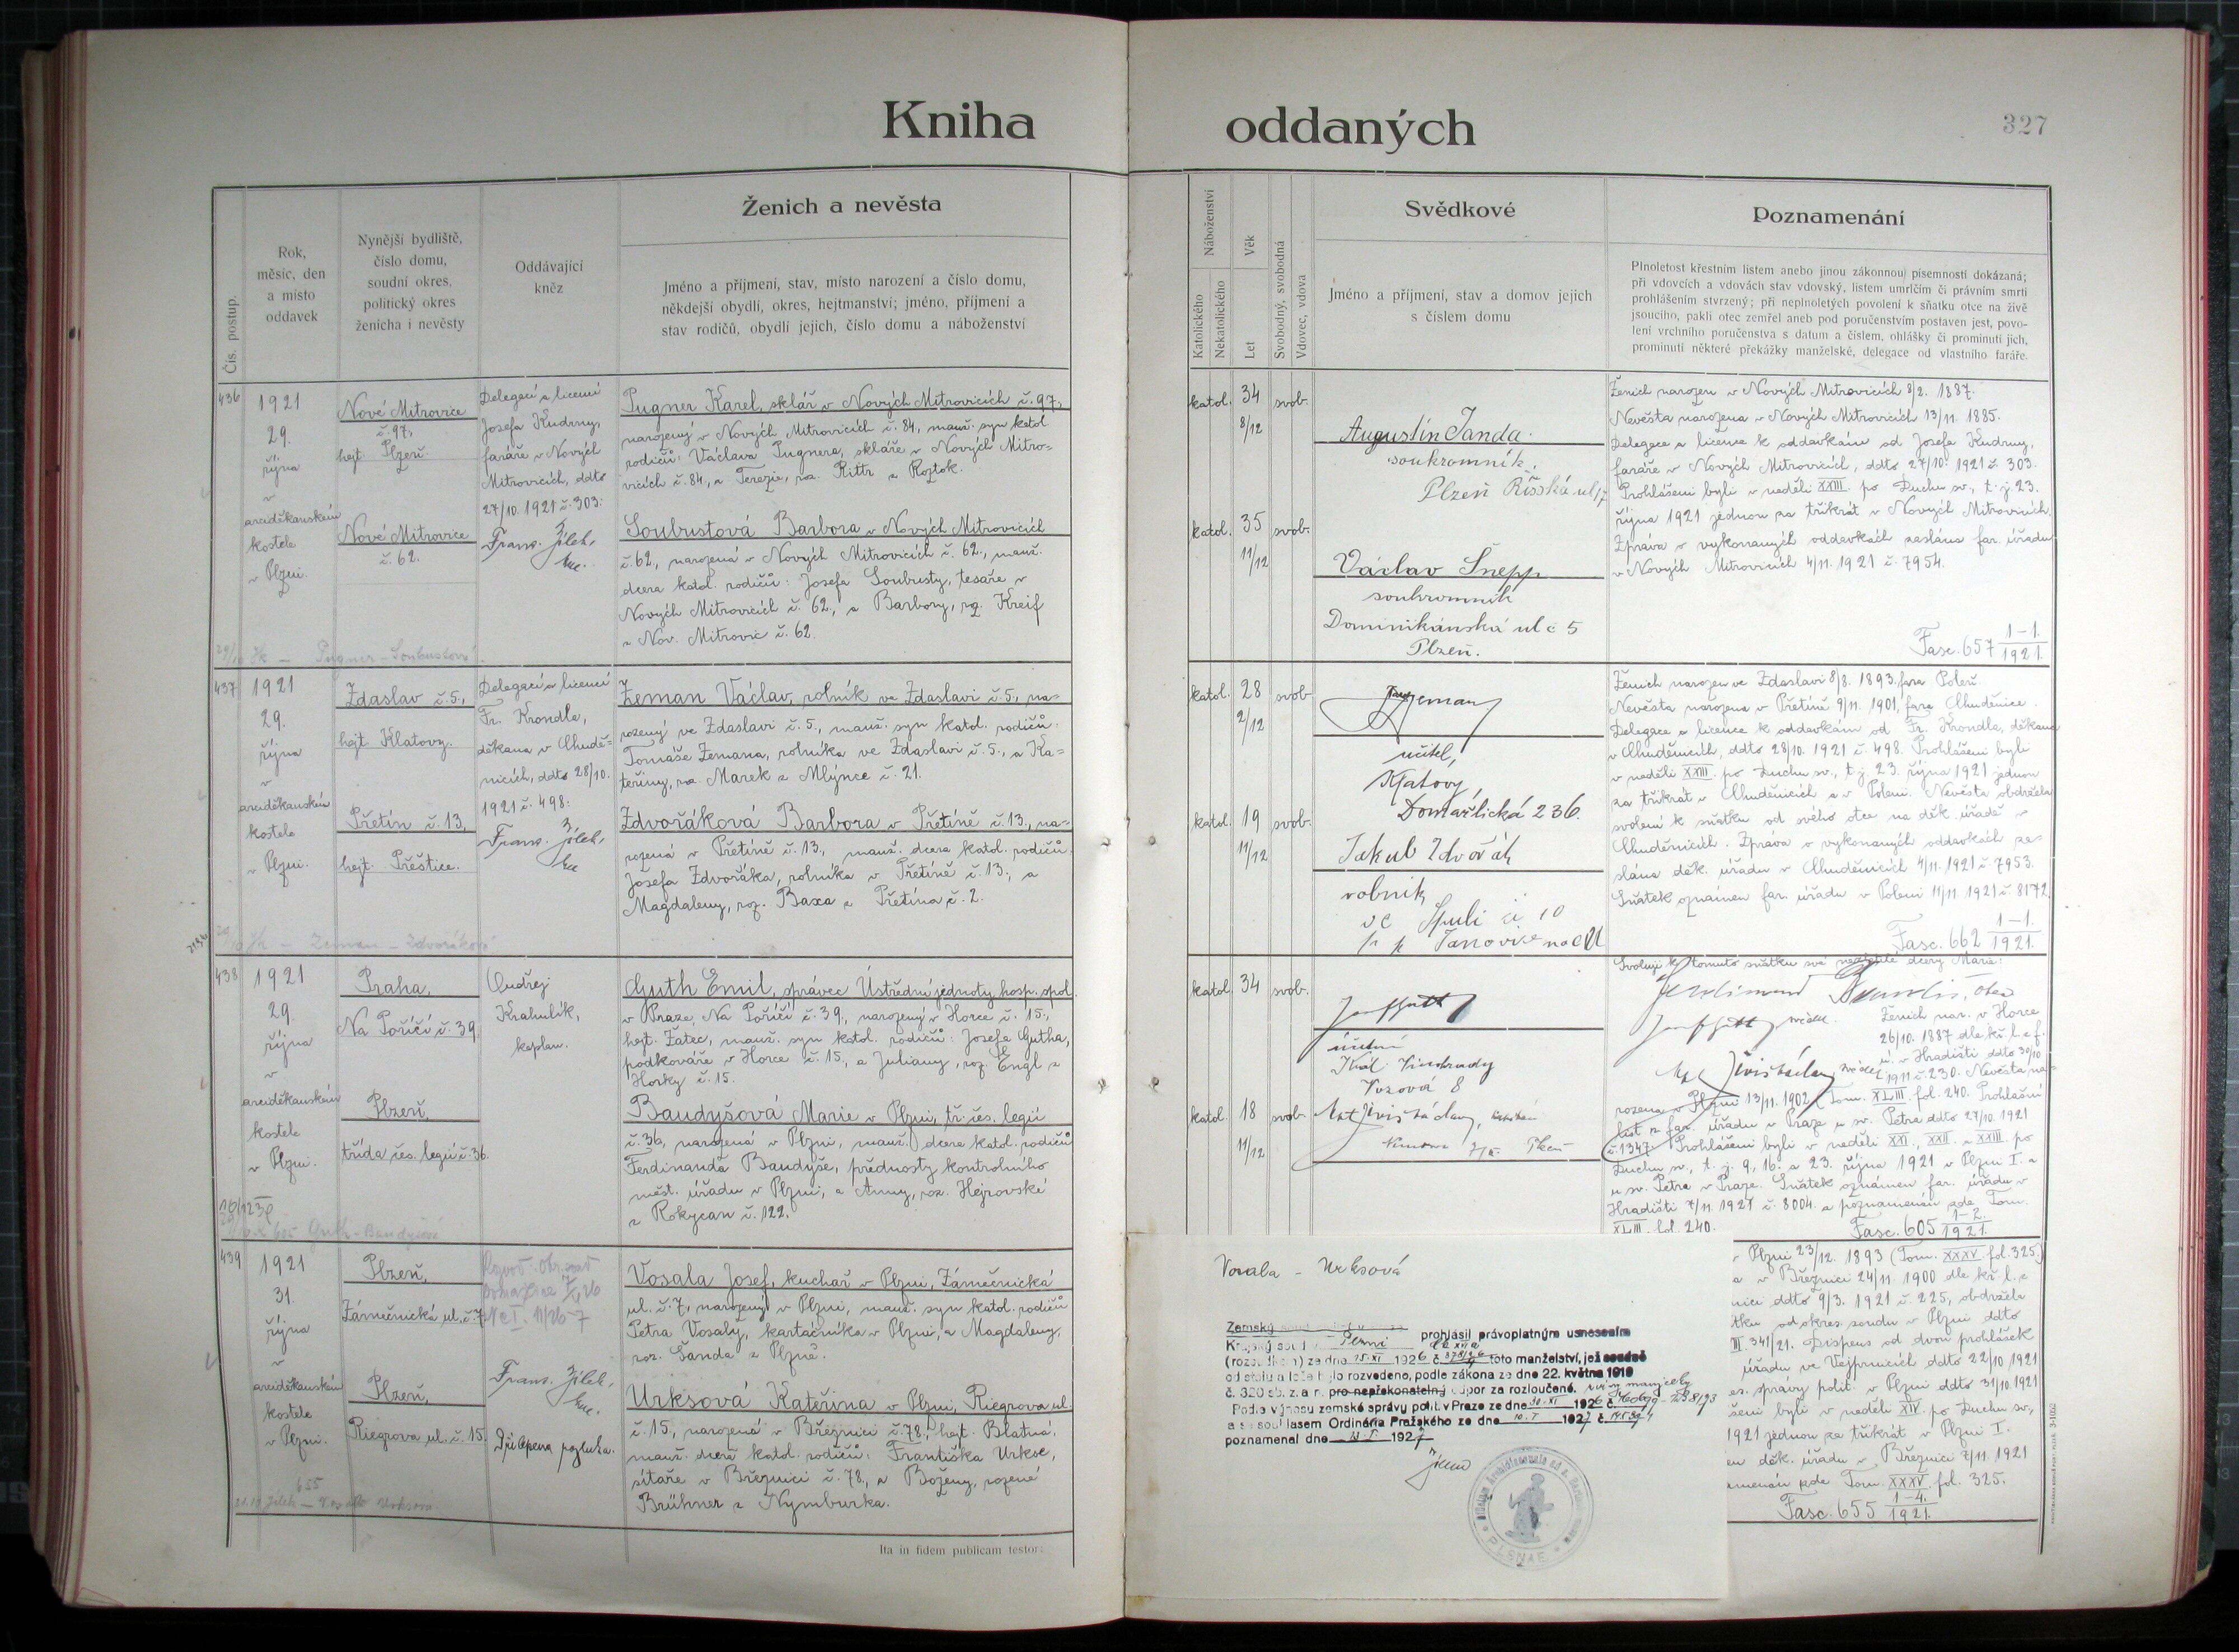 Kniha oddaných
327
Čís. postup.
Rok,
měsíc, den
a místo
oddavek
Nynější bydliště,
číslo domu,
soudní okres,
politický okres
ženicha i nevěsty
Oddávající
kněz
Ženich a nevěsta
Jméno a příjmení, stav, místo narození a číslo domu,
někdejší obydlí, okres, hejtmanství; jméno, příjmení a
stav rodičů, obydlí jejich, číslo domu a náboženství
Náboženství
Katolického
Nekatolického
Věk
Let
Svobodný, svobodná
Vdovec, vdova
Svědkové
Jméno a příjmení, stav a domov jejich
s číslem domu
Poznamenání
Plnoletost křestním listem anebo jinou zákonnou písemností dokázaná;
při vdovcích a vdovách stav vdovský, listem úmrlčím či právním smrti
prohlášením stvrzený; při neplnoletých povolení k sňatku otce na živě
jsoucího, pakli otec zemřel aneb pod poručenstvím postaven jest, povo-
lení vrchního poručenstva s datum a číslem, ohlášky či prominutí jich,
prominutí některé překážky manželské, delegace od vlastního faráře.
436
1921
29.
října
v
arciděkanském
kostele
v Plzni.
Nové Mitrovice
č. 97,
hejt. Plzeň.
Nové Mitrovice
č. 62.
Delegací a licencí
Josefa Kudrny,
faráře v Nových
Mitrovicích, ddto
27/10. 1921 č. 303:
Frant. Jílek,
Pugner Karel, sklář v Nových Mitrovicích č. 97,
narozený v Nových Mitrovicích č. 84, manž. syn katol.
rodičů: Václava Pugnera, skláře v Nových Mitro-
vicích č. 84, a Terezie, roz. Rittr z Roztok.
Soubustová Barbora v Nových Mitrovicích
č. 62., narozená v Nových Mitrovicích č. 62., manž.
dcera katol. rodičů: Josefa Soubusty, tesaře v
Nových Mitrovicích č. 62., a Barbory, roz. Kreif
z Nov. Mitrovic č. 62.
Pugner - Soubustová
katol. 34 8/12 svob.
katol. 35 11/12 svob.
Augustín Janda
soukromník,
Plzeň Říšská ul.
Václav Šnepp
soukromník
Dominikánská ul č 5
Plzeň.
Ženich narozen v Nových Mitrovicích 8/2. 1887.
Nevěsta narozena v Nových Mitrovicích 13/11. 1885.
Delegace a licence k oddavkám od Josefa Kudrny,
faráře v Nových Mitrovicích, ddto 27/10. 1921 č. 303.
Prohlášeni byli v neděli XXIII. po Duchu sv., t. j. 23.
října 1921 jednou za třikrát v Nových Mitrovicích.
Zpráva o vykonaných oddavkách zaslána far. úřadu
v Nových Mitrovicích 4/11. 1921 č. 7954.
Fasc. 657 1-1. 1921.
437
1921
29.
října
v
arciděkanském
kostele
v Plzni.
Ždaslav č. 5.,
hejt. Klatovy.
Přetín č. 13,
hejt. Přeštice.
Delegací a licencí
Fr. Krondla,
děkana v Chudě-
nicích, ddto 28/10.
1921 č. 498:
Frant. Jílek,
Zeman Václav, rolník ve Ždaslavi č. 5., na-
rozený ve Ždaslavi č. 5., manž. syn katol. rodičů:
Tomáše Zemana, rolníka ve Ždaslavi č. 5., a Ka-
teřiny, roz. Marek z Mlýnce č. 21.
Zdvořáková Barbora v Přetíně č. 13., na-
rozená v Přetíně č. 13., manž. dcera katol. rodičů:
Josefa Zdvořáka, rolníka v Přetíně č. 13., a
Magdaleny, roz. Baxa z Přetína č. 2.
Zeman - Zdvořáková
katol. 28 2/12 svob.
katol. 19 11/12 svob.
Zeman
učitel,
Klatovy,
Domažlická 236.
Jakub Zdvořák
rolník
ve Spuli č 10
Janovice
Ženich narozen ve Ždaslavi 8/8. 1893. fara Poleň.
Nevěsta narozena v Přetíně 9/11. 1901, fara Chudenice.
Delegace a licence k oddavkám od Fr. Krondla, děkana
v Chudenicích, ddto 28/10. 1921 č. 498. Prohlášeni byli
v neděli XXIII. po Duchu sv., t. j. 23. října 1921 jednou
za třikrát v Chuděnicích a v Poleni. Nevěsta obdržela
svolení k sňatku od svého otce na děk. úřadě v
Chuděnicích. Zpráva o vykonaných oddavkách za-
slána děk. úřadu v Chuděnicích 4/11. 1921 č. 7953.
Sňatek oznámen far. úřadu v Poleni 11/11. 1921 č. 8172.
Fasc. 662 1-1. 1921.
438
1921
29.
října
v
arciděkanském
kostele
v Plzni.
Praha,
Na Poříčí č. 39.
Plzeň,
třída čes. legií č. 36.
Ondřej
Krahulík,
kaplan.
Guth Emil, správce Ústřední jednoty hosp. spol.
v Praze, Na Poříčí č. 39., narozený v Horce č. 15.,
hejt. Žatec, manž. syn katol. rodičů: Josefa Gutha,
podkováře v Horce č. 15., a Juliany, roz. Engl z
Horky č. 15.
Baudyšová Marie v Plzni, tř. čes. legií
č. 36, narozená v Plzni, manž. dcera katol. rodičů
Ferdinanda Baudyše, přednosty kontrolního
měst. úřadu v Plzni, a Anny, roz. Hejrovské
z Rokycan č. 122.
Guth - Baudyšová
katol. 34 svob.
katol. 18 11/12 svob.
Král. Vinohrady
Vozová 8
Plzeň
Svoluji k tomuto sňatku své nezletilé dcery Marie:
otec
svědek.
Ženich nar. v Horce
26/10. 1887 dle kř. l. z f.
ú. v Hradišti ddto 30/10
1911 č. 230. Nevěsta na-
rozena v Plzni 13/11. 1902 (Tom. XLIII. fol. 240. Prohlašní
list z far. úřadu v Praze u sv. Petra ddto 27/10. 1921
č. 1347. Prohlášeni byli v neděli XXI., XXII. a XXIII. po
Duchu sv., t. j. 9., 16. a 23. října 1921 v Plzni I. a
u sv. Petra v Praze. Sňatek oznámen far. úřadu v
Hradišti 7/11. 1921 č. 8004. a poznamenán zde Tom.
XLIII. fol. 240.
Fasc. 605 1-2. 1921.
439
1921
31.
října
v
arciděkanském
kostele
v Plzni.
Plzeň,
Zámečnická ul. č. 7
Plzeň,
Riegrova ul. č. 15.
Frant. Jílek,
Přilepena rozluka.
Vosala Josef, kuchař v Plzni, Zámečnická
ul. č. 7, narozený v Plzni, manž. syn katol. rodičů
Petra Vosaly, kartáčníka v Plzni, a Magdaleny,
roz. Šanda z Plzně.
Urksová Kateřina v Plzni, Riegrova ul.
č. 15., narozená v Březnici č. 78., hejt. Blatná,
manž. dcera katol. rodičů: Františka Urkse,
sítaře v Březnici č. 78., a Boženy, rozené
Brühner z Nymburka.
655
Ita in fidem publicam testor:
Vosala - Urksová
Zemský
Krajský soud Plzni prohlásil právoplatným usnesením
(rozsudkem) ze dne 15. XI 1926 č. toto manželství, jež soudně
od stolu a lože bylo rozvedeno, podle zákona ze dne 22. května 1919
č. 320 sb. z. a n. pro nepřekonatelný odpor za rozloučené.
Podle výnosu zemské správy polit. v Praze ze dne 30. XI 1926 č.
a se souhlasem Ordinária Pražského ze dne 10. I 1927 č.
poznamenal dne 1927
PLSNAE
v Plzni 23/12. 1893 (Tom. XXXV. fol. 325.)
a v Březnici 24/11. 1900 dle kř. l. z
nici ddto 9/3. 1921 č. 225, obdržela
tku od okres. soudu v Plzni ddto
III. 341/21. Dispens od dvou prohlášek
úřadu ve Vejprnicích ddto 22/10 1921
es. správy polit. v Plzni ddto 31/10. 1921
šeni byli v neděli XIV. po Duchu sv.,
1921 jednou za třikrát v Plzni I.
en děk. úřadu v Březnici 7/11. 1921
amenán zde Tom. XXXV. fol. 325.
Fasc. 655 1-4. 1921.